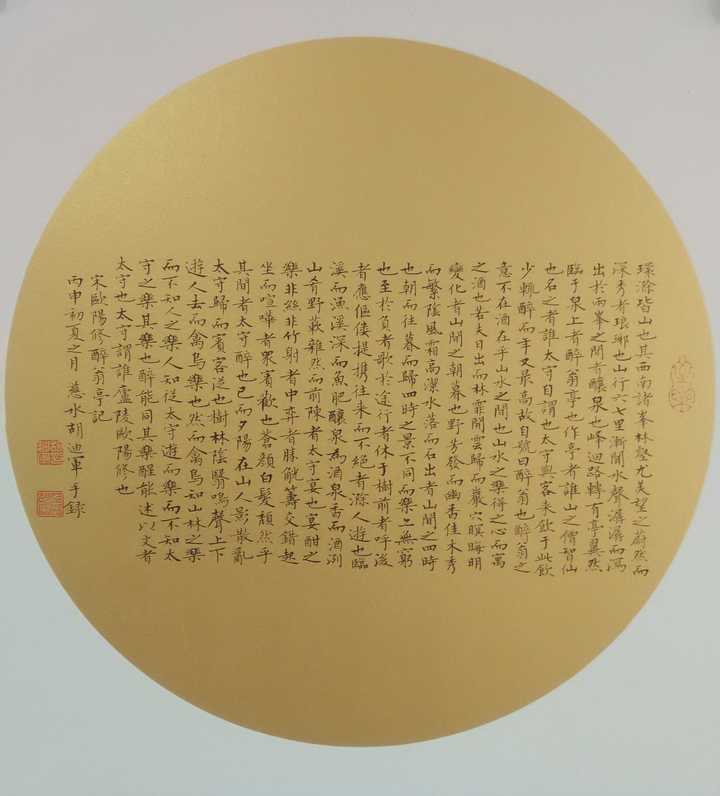 環滁皆山也其西南諸峯林壑尤美望之蔚然而
深秀者琅瑘也山行六七里漸聞水聲潺潺而瀉
出於兩峯之間者釀泉也峰迴路轉有亭翼然
臨于泉上者醉翁亭也作亭者誰山之僧智仙
也名之者誰太守自謂也太守與客来飲于此飲
少輒醉而年又最高故自號曰醉翁也醉翁之
意不在酒在乎山水之間也山水之樂得之心而寓
之酒也若夫日出而林霏開雲歸而巖穴暝晦明
變化者山間之朝暮也野芳發而幽香佳木秀
而繁陰風霜高潔水落而石出者山間之四時
也朝而往暮而歸四時之景不同而樂亦無窮
也至於負者歌於途行者休于樹前者呼後
者應傴僂提携往来而不絕者滁人遊也臨
溪而漁溪深而魚肥釀泉為酒泉香而酒洌
山肴野蔌雜然而前陳者太守宴也宴酣之
樂非絲非竹射者中弈者勝觥籌交錯起
坐而喧嘩者眾賓歡也蒼顏白髮頹然乎
其間者太守醉也已而夕陽在山人影散亂
太守歸而賓客從也樹林陰翳鳴聲上下
遊人去而禽鳥樂也然而禽鳥知山林之樂
而不知人之樂人知從太守遊而樂而不知太
守之樂其樂也醉能同其樂醒能述以文者
太守也太守謂誰廬陵歐陽修也
宋歐陽修醉翁亭記
丙申初夏之月慈水胡迪軍手録